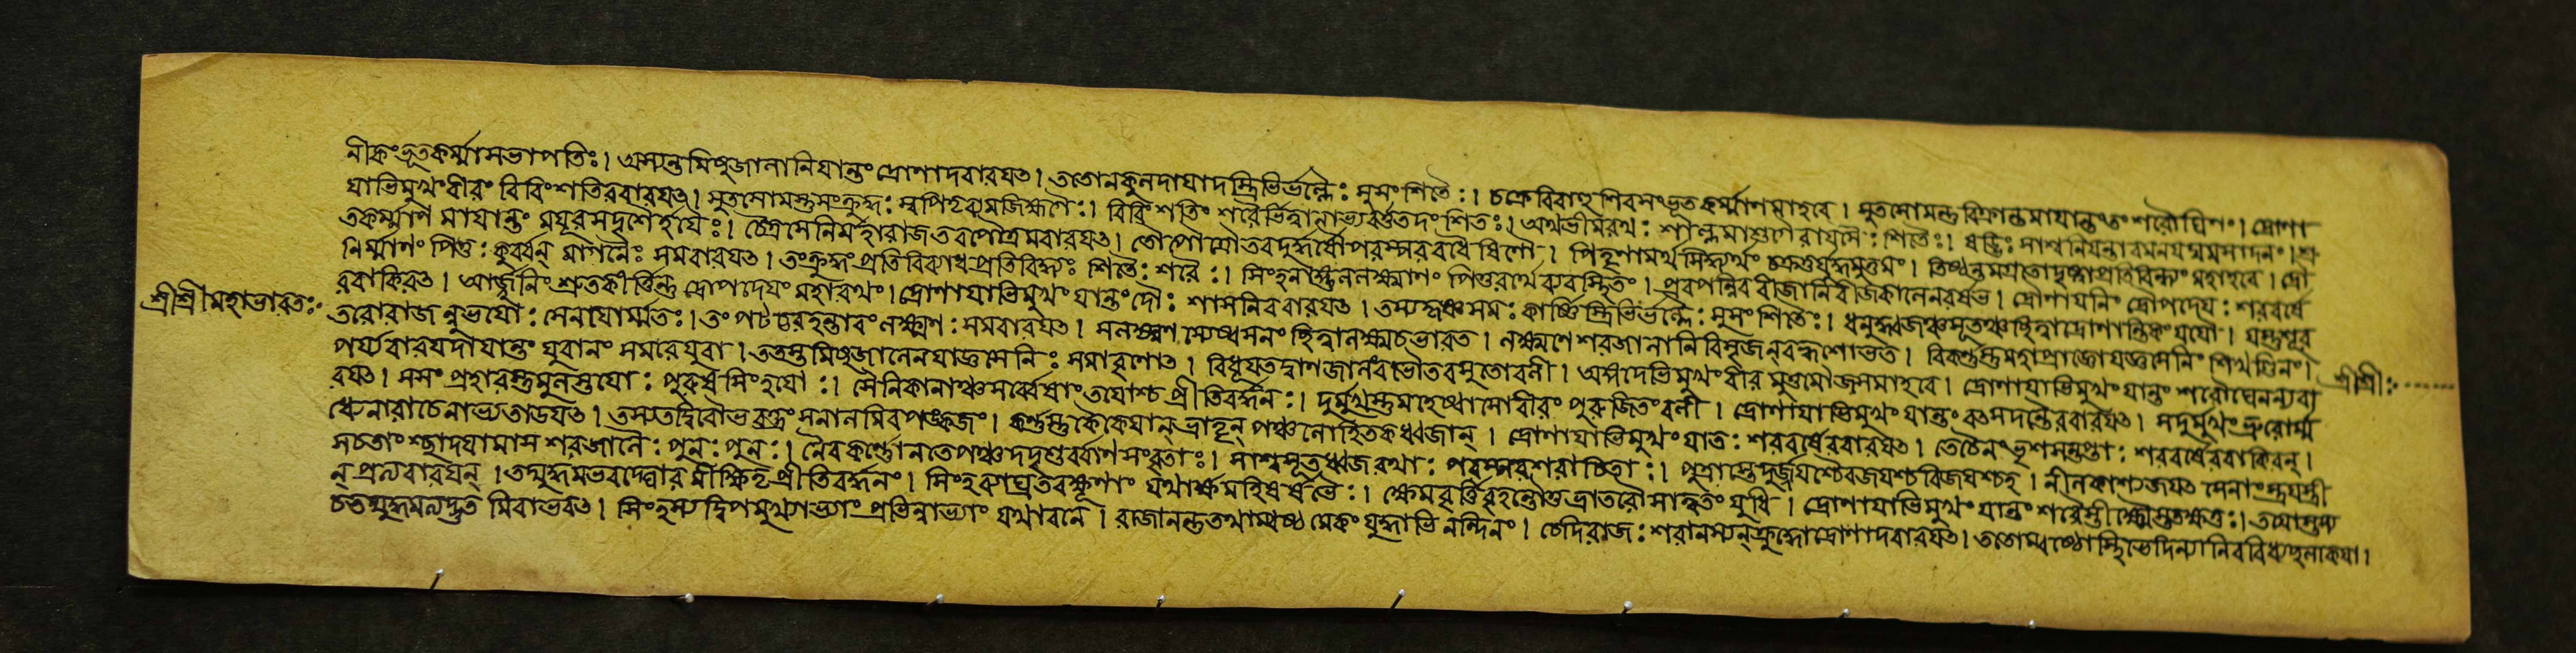 নীকংভূতকর্ম্মাসভাপতিঃ। অস্যন্তমিষুজালানিযান্তং দ্রোণাদবারয়ৎ। ততোনকুলদায়াদস্ত্রিভির্ভল্লৈঃ সুসংশিতৈঃ। চক্রে বিবাহু শিরসংভূতকর্ম্মাণমাহবে। সুতসোমন্তু বিক্রান্তমায়ান্তংতং শরৌঘিণং। দ্রোণা
য়াভিমুখং বীরং বিবিংশতিরবারয়ৎ। সুতসোমস্তুসংক্রুদ্ধঃ স্বপিতৃব্যমজিহ্মগৈঃ। বিবিংশতিং শরৈর্ভিত্ত্বানাভ্যবর্ত্ততদংশিতঃ। অথভীমরথঃ শাল্বমাশুগৈরায়সৈঃ শিতৈঃ। ষড়্ভিঃ সাশ্বনিয়ন্তারমনয়দ্যমসাদনং। শ্রু
তকর্ম্মাণ মায়ান্তং ময়ূরসদৃশৈর্হয়ৈঃ। চৈত্রসেনির্মহারাজতবপৌত্রমবারয়ৎ। তৌপৌত্রৌতবদুর্দ্ধর্ষৌপরস্পরবধৈষিণৌ। পিতৃণামর্থসিদ্ধ্যর্থং চক্রতুর্যুদ্ধমুত্তমং। তিষ্ঠন্তমগ্রতোদৃষ্ট্বাপ্রতিবিন্ধ্যং মহাহবে। দ্রৌ
ণির্ম্মানং পিতুঃ কুর্ব্বন্ মার্গণৈঃ সমবারয়ৎ। তংক্রুদ্ধংপ্রতিবিব্যাধপ্রতিবিন্ধ্যঃ শিতৈঃ শরৈঃ। সিংহলাঙ্গুললক্ষ্মাণং পিতুরর্থেব্যবস্থিতং। প্রবপন্নিব বীজানিবীজকালেনরর্ষভ। দ্রৌণায়নিং দ্রৌপদেয়ঃ শরবর্ষৈ
রবাকিরৎ। আর্জ্জুনিং শ্রুতকীর্ত্তিন্তু দ্রৌপদেয়ং মহারথং। দ্রোণায়াভিমুখং যান্তং দৌঃ শাসনিরবারয়ৎ। তস্যকৃষ্ণসমঃ কার্ষ্ণিস্ত্রিভির্ভল্লৈঃ সুসংশিতৈঃ। ধনুর্ধ্বজঞ্চসূতঞ্চছিত্বাদ্রোণান্তিকংযযৌ। যস্তুশূর
শ্রীশ্রীমহাভারতঃ
তরোরাজন্নুভয়োঃ সেনয়োর্ম্মতঃ। তং পটচ্চরহন্তারং লক্ষ্মণঃ সমবারয়ৎ। সলক্ষ্মণস্যেষ্বসনং ছিত্বালক্ষ্মচভারত। লক্ষ্মণেশরজালানিবিসৃজন্বহ্বশোভত। বিকর্ণস্তুমহাপ্রাজ্ঞোযাজ্ঞসেনিং শিখণ্ডিনং।
পর্য্যবারয়দায়ান্তং যুবানং সমরেযুবা। ততস্তমিষুজালেনযাজ্ঞসেনিঃ সমাবৃণোৎ। বিধূয়তদ্বাণজালংবভৌতবসুতোবলী। অঙ্গদোভিমুখংবীর মুত্তমৌজসমাহবে। দ্রোণায়াভিমুখং যান্তং শরৌঘেনন্যবা
শ্রীশ্রীঃ
রয়ৎ। সসংপ্রহারস্তুমুলস্তয়োঃ পুরুষসিংহয়োঃ। সৈনিকানাঞ্চসর্ব্বেষাংতয়োশ্চপ্রীতিবর্দ্ধনঃ। দুর্মুখস্তুমহেষ্বাসোবীরং পুরুজিতংবলী। দ্রোণায়াভিমুখং যান্তং বৎসদন্তৈরবারয়ৎ। সদুর্মুখংভ্রুবোর্ম্ম
ধ্যেনারাচেনাভ্যতাড়য়ৎ। তস্যতদ্বিবভৌবক্ত্রং সনালমিবপঙ্কজং। কর্ণস্তুকৈকেয়ান্ভ্রাতৃন্ পঞ্চলোহিতকধ্বজান্। দ্রোণায়াভিমুখংযাতঃ শরবর্ষৈরবারয়ৎ। তেচৈনংভৃশসন্তপ্তাঃ শরবর্ষৈরবাকিরন্।
সচতাং শ্ছাদয়ামাস শরজালৈঃ পুনঃ পুনঃ। নৈবকর্ণোনতেপঞ্চদদৃশুর্বাণসংবৃতাঃ। সাশ্বসূতধ্বজরথাঃ পরস্পরশরাচিতাঃ। পুত্রাস্তেদুর্জ্জয়শ্চৈবজয়শ্চবিজয়শ্চহ। নীলকাশ্যজয়ৎসেনাংস্ত্রয়স্ত্রী
ন্ প্রত্যবারয়ন্। তদ্যুদ্ধমভবদ্ঘোর মীক্ষিতৃপ্রীতিবর্দ্ধনং। সিংহব্যাঘ্রতরক্ষূণাং যথর্ক্ষমহিষর্ষভৈঃ। ক্ষেমধূর্ত্তিবৃহন্তৌতুভ্রাতরৌসাত্বতংযুধি। দ্রোণায়াভিমুখং যান্তং শরৈস্তীক্ষ্ণৈস্ততক্ষতুঃ। তয়োস্তস্য
চতদ্যুদ্ধমত্যদ্ভুত মিবাভবৎ। সিংহস্যদ্বিপমুখ্যাভ্যাং প্রভিন্নাভ্যাং যথাবনে। রাজানন্ততথাম্বষ্ঠ মেকং যুদ্ধাভিনন্দিনং। চেদিরাজঃ শরানস্যন্ক্রুদ্ধোদ্রোণাদবারয়ৎ। ততোম্বষ্ঠোস্থিভেদিন্যানিরবিধ্যচ্ছলাকয়া।